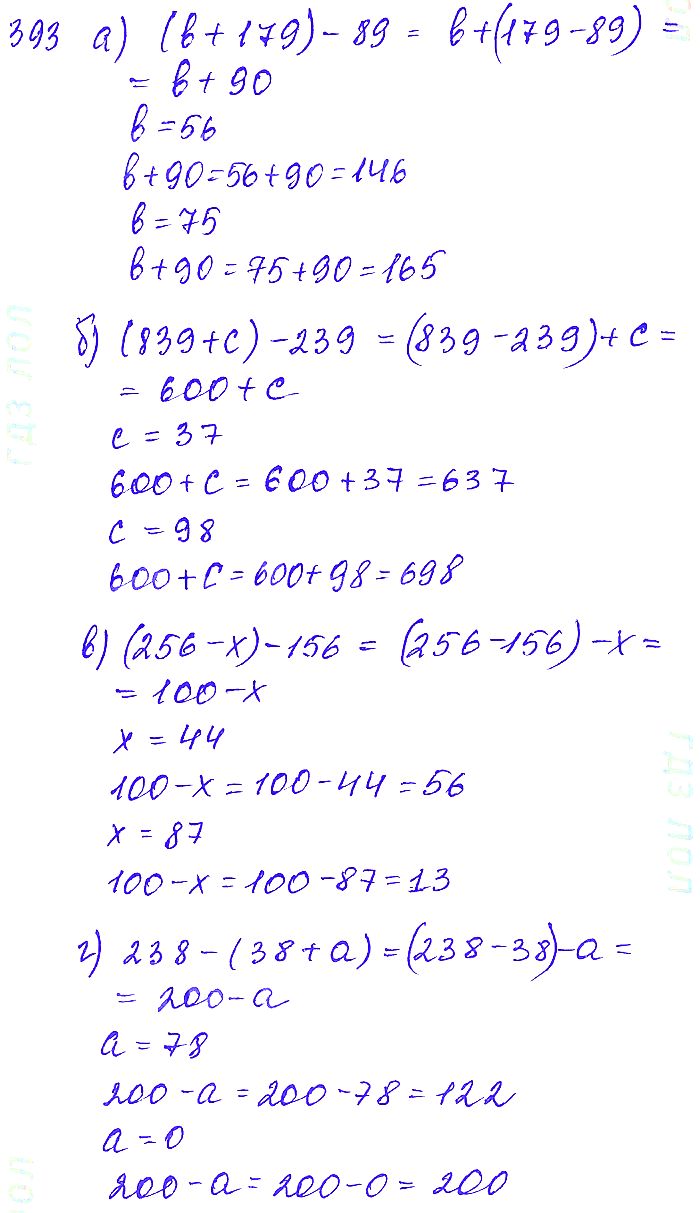 393 а) (в + 179) - 89 = в + (179 - 89) =
= в + 90
в = 56
в + 90 = 56 + 90 = 146
в = 75
в + 90 = 75 + 90 = 165
б) (839 + с) - 239 = (839 - 239) + с =
= 600 + с
с = 37
600 + с = 600 + 37 = 637
с = 98
600 + с = 600 + 98 = 698
в) (256 - х) - 156 = (256 - 156) - х =
= 100 - х
х = 44
100 - х = 100 - 44 = 56
х = 87
100 - х = 100 - 87 = 13
г) 238 - (38 + а) = (238 - 38) - а =
= 200 - а
а = 78
200 - а = 200 - 78 = 122
а = 0
200 - а = 200 - 0 = 200
гдз лол
гдз лол
лол